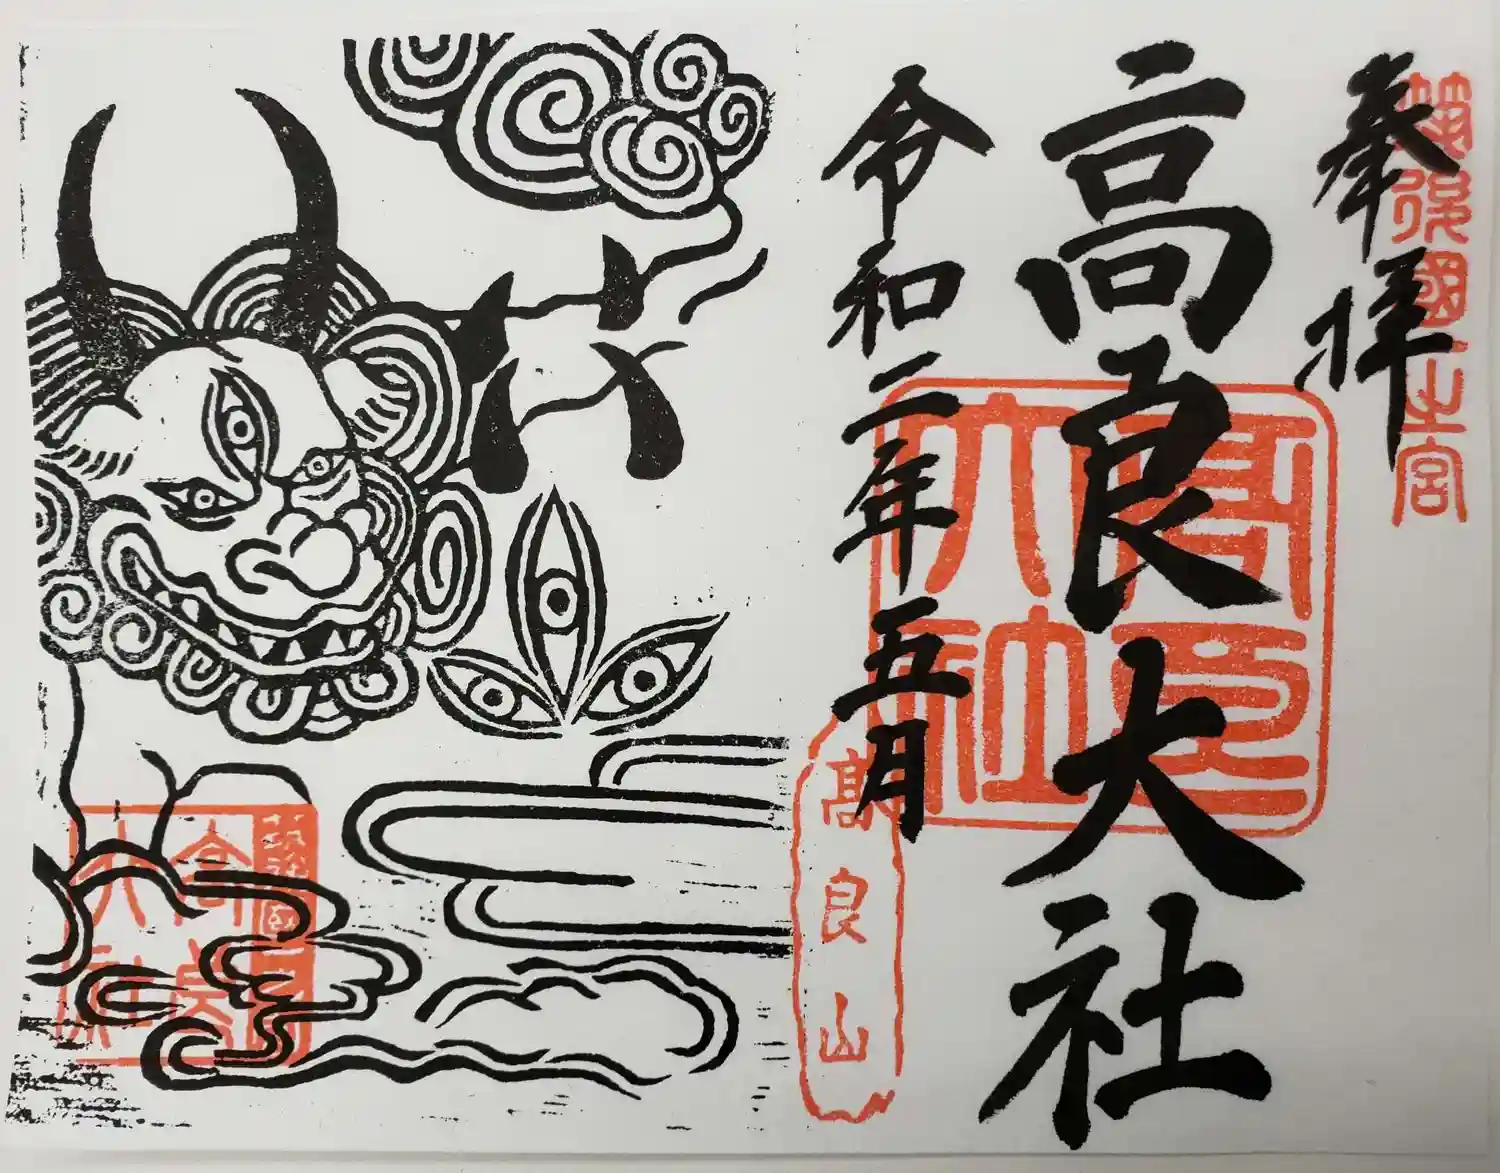 奉拝
筑後國一之宮
高良大社
高良大社
令和二年五月
高良山
高良大社